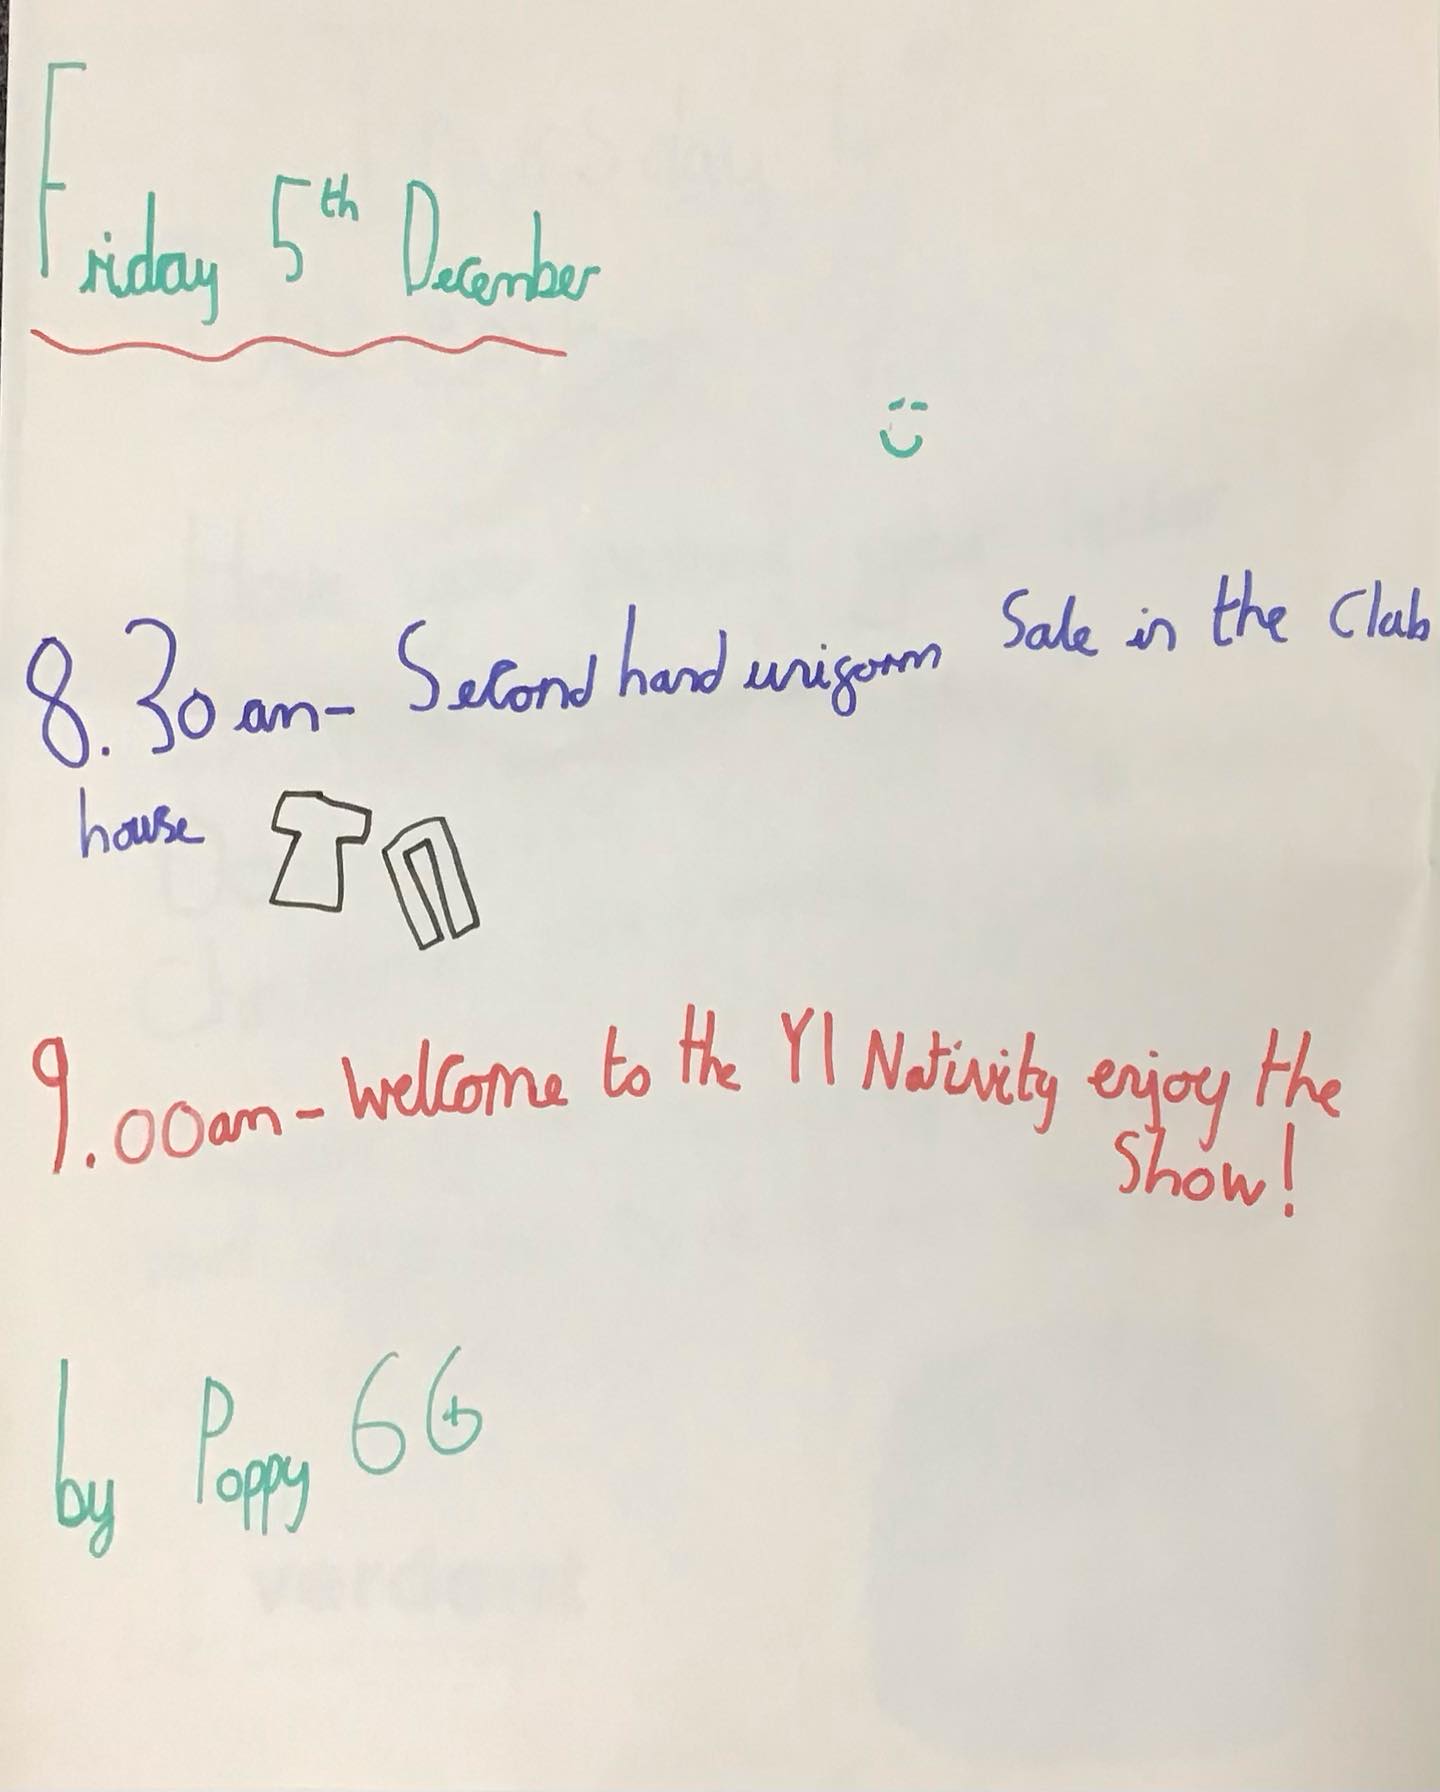 Friday 5th December
8.30am- Second hand uniform Sale in the Club
house
9.00am- welcome to the Y1 Nativity enjoy the
Show!
by Poppy 6G